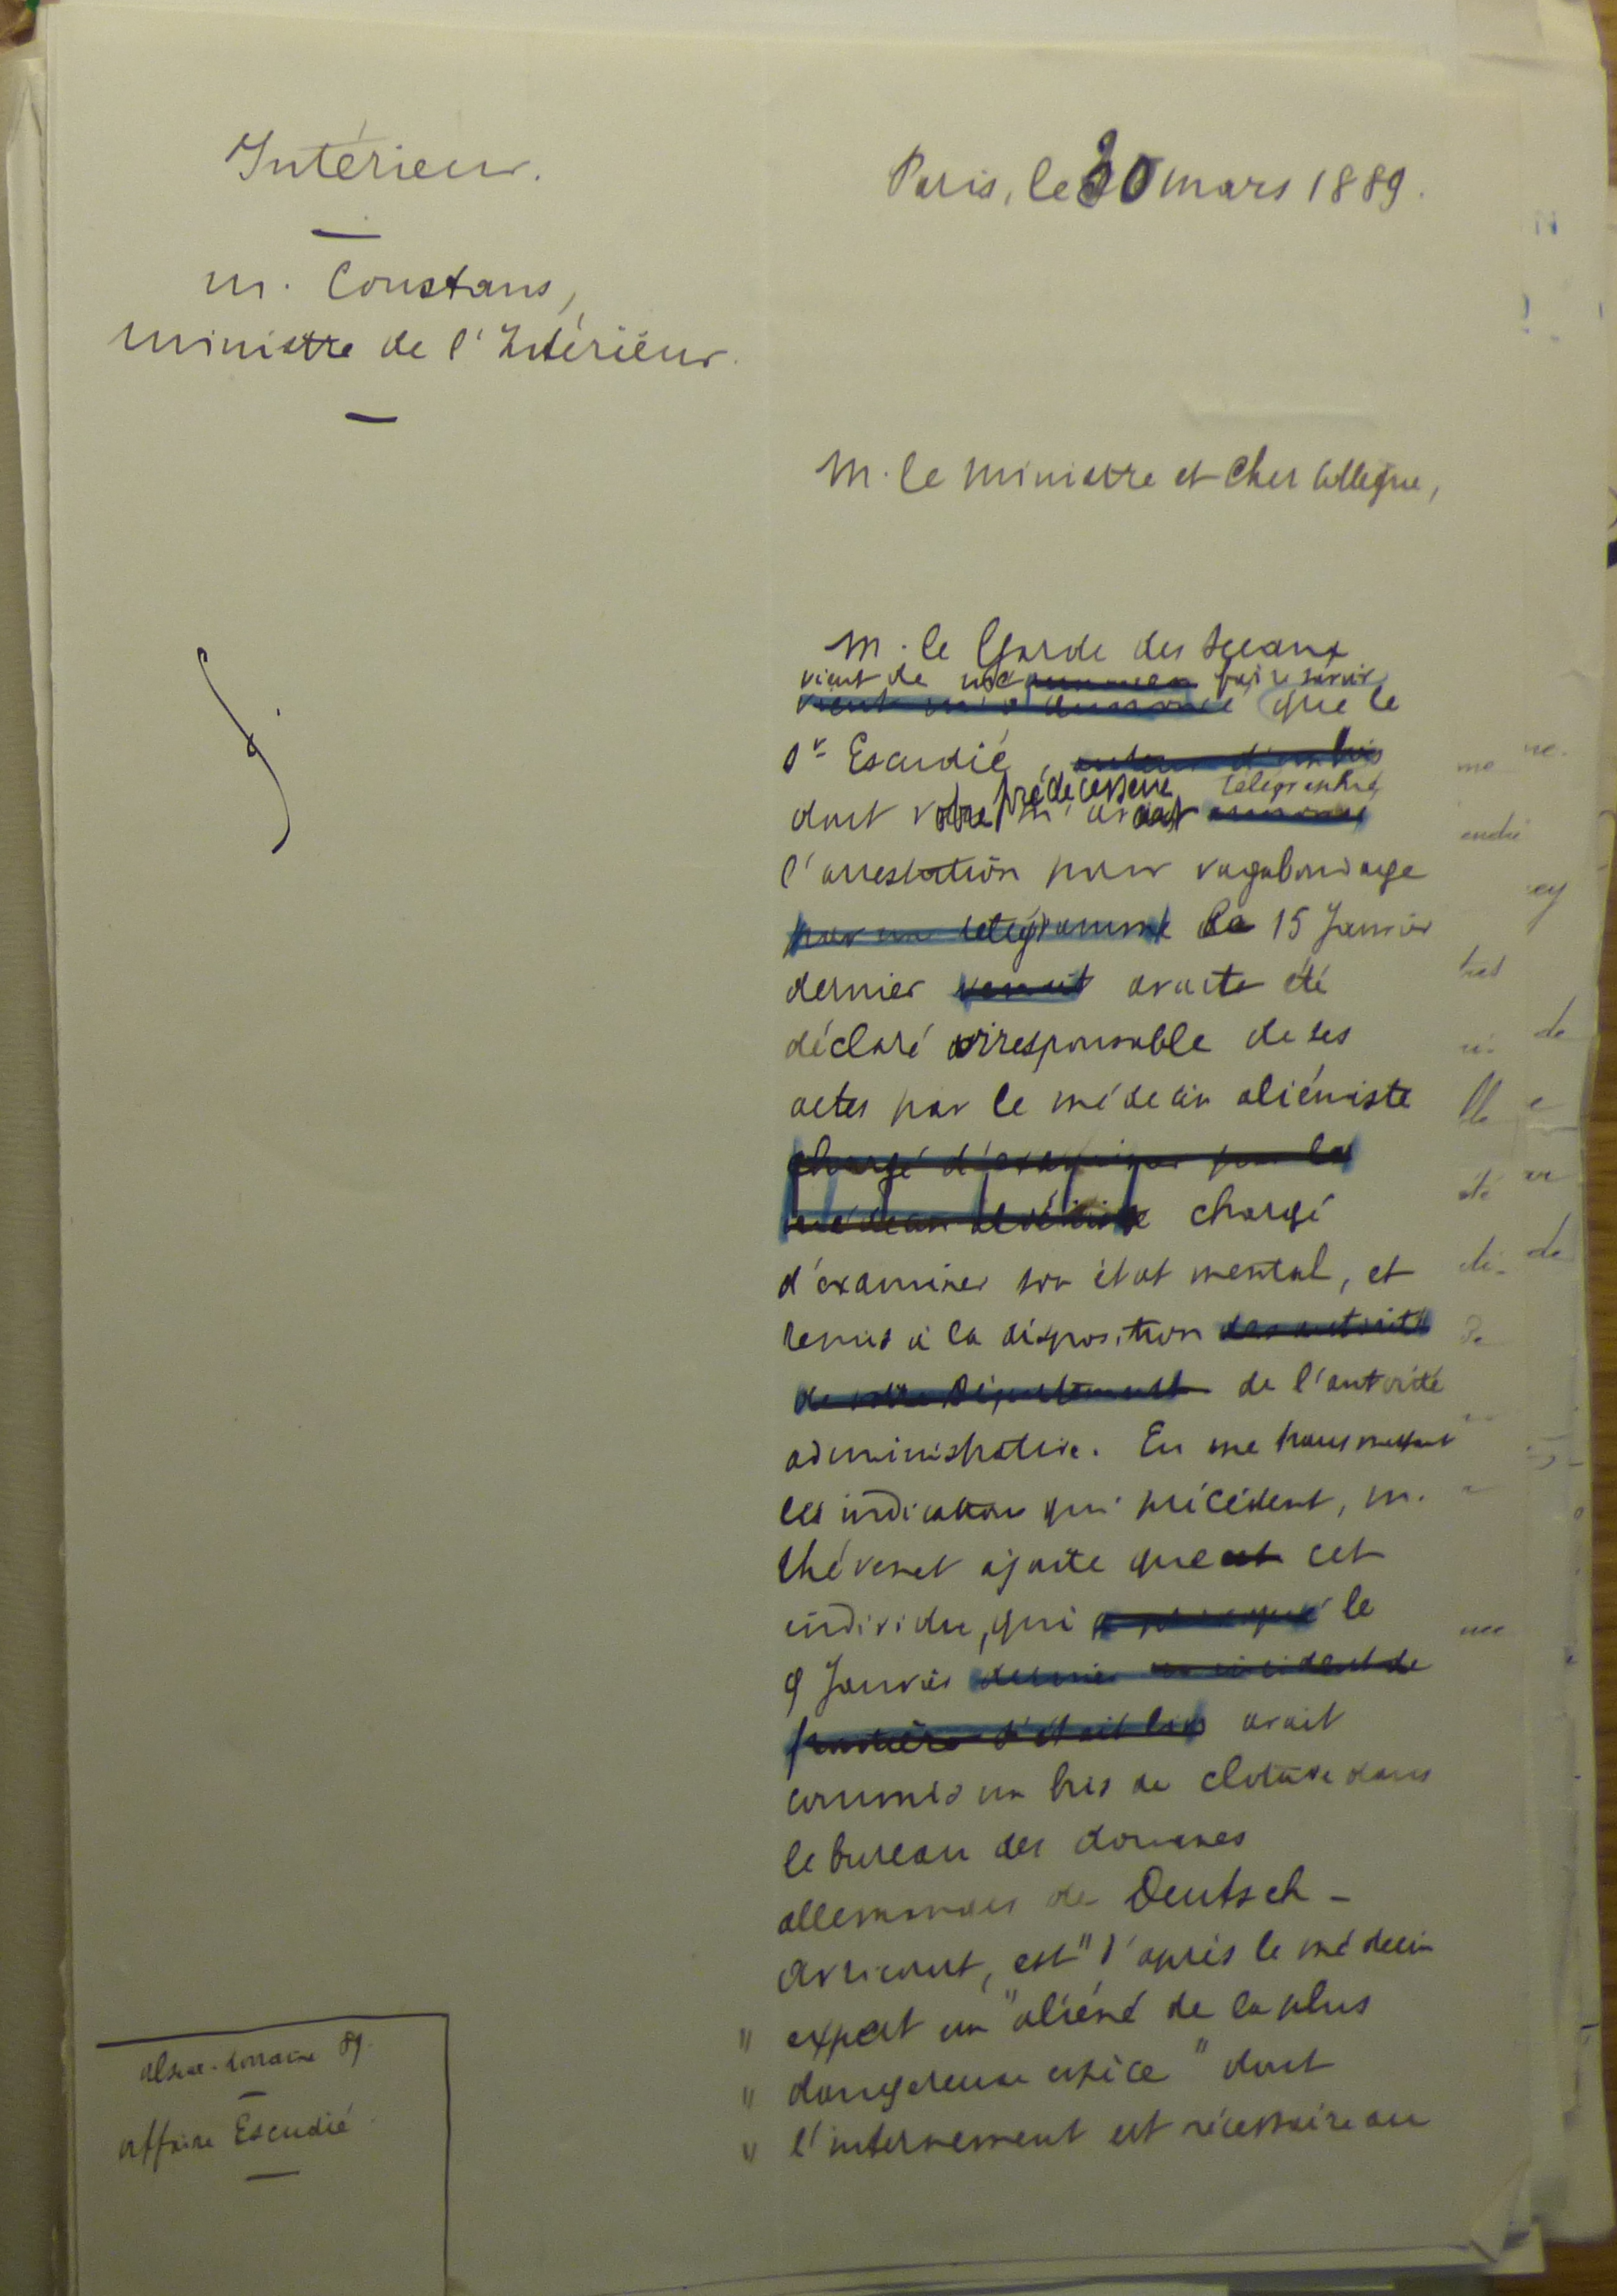 Intérieur.
M. Constans,
ministre de l'Intérieur.
Paris, le 30 mars 1889.
M. le Ministre et Cher Collègue,
M. le Garde des Sceaux
vient de me faire savoir
que le
Sr Escudié,
télégraphié
dont votre prédécesseur m'avait
l'arrestation pour vagabondage
par un télégramme le 15 Janvier
dernier venait avait été
déclaré irresponsable de ses
actes par le médecin aliéniste
chargé d'examiner par le
médecin aliéniste chargé
d'examiner son état mental, et
remis à la disposition des autorités
de votre Département de l'autorité
administrative. En me transmettant
les indications qui précèdent, M.
Thévenet ajoute que cet
individu, qui le
9 Janvier dernier un incident de
frontière s'était avait
commis un bris de cloture dans
le bureau des douanes
allemandes de Deutsch-
Avricourt, est "d'après le médecin
" expert un "aliéné de la plus
" dangereuse espèce" dont
" l'internement est nécessaire au
Alsace-Lorraine 89.
Affaire Escudié.